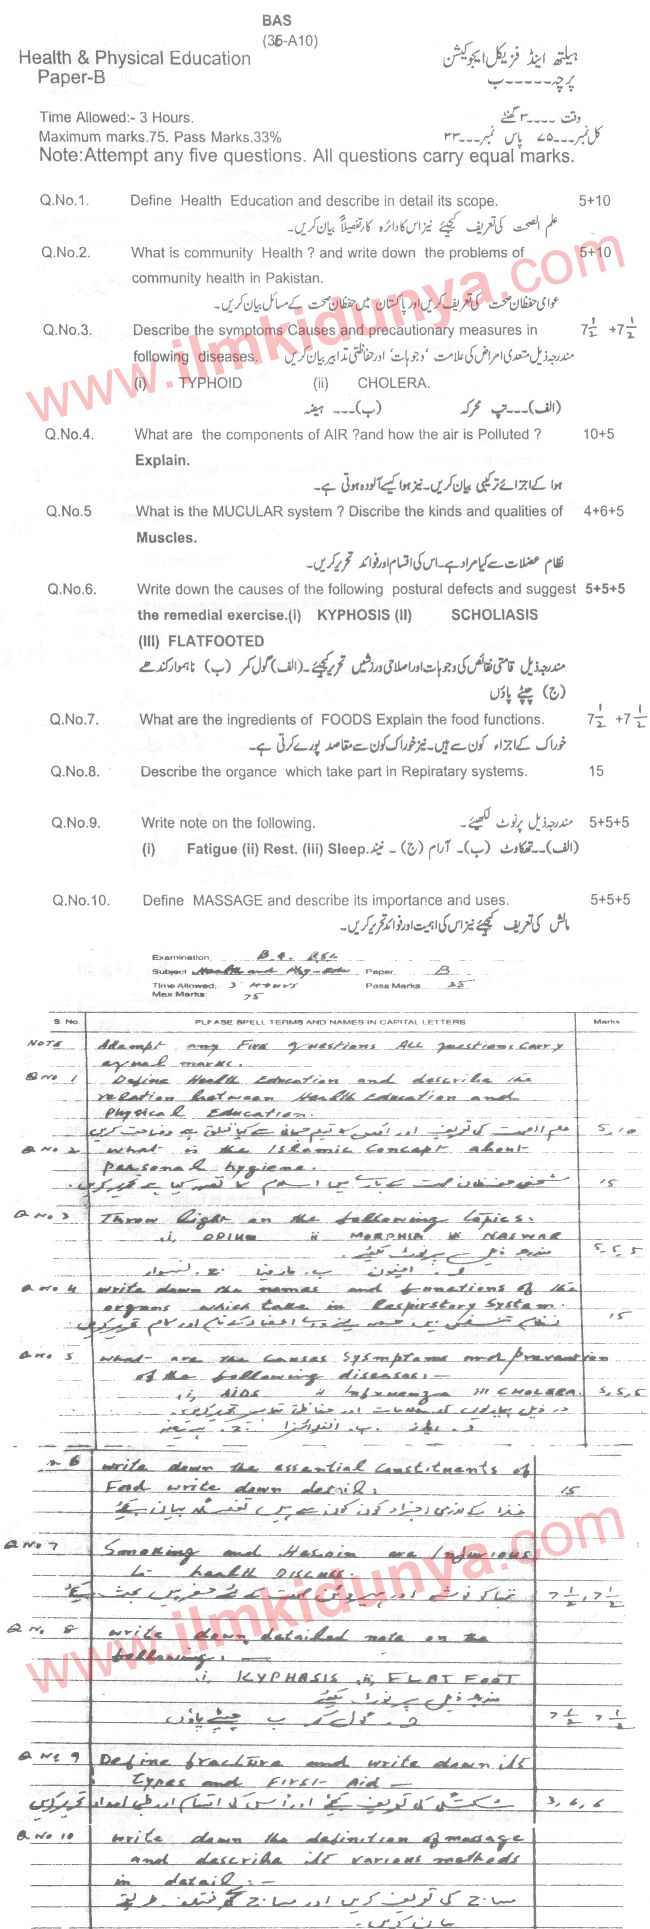 BAS
(35-A10)
Health & Physical Education ہیلتھ اینڈ فزیکل ایجوکیشن
Paper-B پرچہ-----ب
Time Allowed:- 3 Hours. وقت ----۳ گھنٹے
Maximum marks.75. Pass Marks.33% کل نمبر---۷۵ پاس نمبر---۳۳
Note:Attempt any five questions. All questions carry equal marks.
Q.No.1. Define Health Education and describe in detail its scope. 5+10
علم الصحت کی تعریف کیجئیے نیز اس کا دائرہ کار تفصیلاً بیان کریں۔
Q.No.2. What is community Health ? and write down the problems of 5+10
community health in Pakistan.
عوامی حفظان صحت کی تعریف کریں اور پاکستان میں حفظان صحت کے مسائل بیان کریں۔
Q.No.3. Describe the symptoms Causes and precautionary measures in 7½ +7½
following diseases. مندرجہ ذیل متعدی امراض کی علامت 'وجوہات' اور حفاظتی تدابیر بیان کریں
(i) TYPHOID (ii) CHOLERA.
(الف)---تپ محرکہ (ب)--- ہیضہ
Q.No.4. What are the components of AIR ?and how the air is Polluted ? 10+5
Explain.
ہوا کے اجزائے ترکیبی بیان کریں۔نیز ہوا کیسے آلودہ ہوتی ہے۔
Q.No.5 What is the MUCULAR system ? Discribe the kinds and qualities of 4+6+5
Muscles.
نظام عضلات سے کیا مراد ہے۔اس کی اقسام اور فوائد تحریر کریں۔
Q.No.6. Write down the causes of the following postural defects and suggest 5+5+5
the remedial exercise.(i) KYPHOSIS (II) SCHOLIASIS
(III) FLATFOOTED
مندرجہ ذیل قامتی نقائص کی وجوہات اور اصلاحی ورزشیں تحریر کیجئیے۔(الف) گول کمر (ب) ناہموار کندھے
(ج) چپٹے پاؤں
Q.No.7. What are the ingredients of FOODS Explain the food functions. 7½ +7½
خوراک کے اجزاء کون سے ہیں۔نیز خوراک کون سے مقاصد پورے کرتی ہے۔
Q.No.8. Describe the organce which take part in Repiratary systems. 15
Q.No.9. Write note on the following. مندرجہ ذیل پر نوٹ لکھیئے۔ 5+5+5
(i) Fatigue (ii) Rest. (iii) Sleep. (الف)--تھکاوٹ (ب)۔ آرام (ج)۔ نیند
Q.No.10. Define MASSAGE and describe its importance and uses. 5+5+5
مالش کی تعریف کیجئیے نیز اس کی اہمیت اور فوائد تحریر کریں۔
Examination. B.A. BSc
Subject Health and Phy-edu Paper B
Time Allowed: 3 Hours Pass Marks 25
Max Marks: 75
S. No. PLEASE SPELL TERMS AND NAMES IN CAPITAL LETTERS Marks
NOTE Attempt any Five questions ALL questions carry
equal marks.
Q No 1 Define Health Education and describe the
relation between Health Education and
Physical Education.
علم الصحت کی تعریف اور اس کا تعلیم جسمانی سے کیا تعلق ہے وضاحت کریں 5,10
Q No 2 what is the Islamic Concept about
personal hygiene.
شخصی حفظان صحت کے بارے میں اسلام کا تصور کیا ہے تحریر کریں۔ 15
Q No 3 Throw light on the following topics:
i, OPIUM ii MORPHIA iii NASWAR
مندرجہ ذیل پر نوٹ لکھیئے۔ 5,5,5
افیون ب۔ مارفیا ج۔ نسوار
Q No 4 write down the names and functions of the
organs which take in Respirstory System.
15
Q No 5 what are the causes Sysmptoms and prevention
of the following diseases:-
i, AIDS ii Infxuenza iii CHOLERA. 5,5,5
ایڈز ب۔ انفلوائنزا ج۔ ہیضہ
6 write down the essential constituents of
Food write down detail: 15
غذا کے ضروری اجزاء کون کون سے ہیں تفصیلاً بیان کیجئے
Q No 7 Smoking and Heroin are Injurious
to health DISCUSS.
7½, 7½
Q No 8 write down detailed note on the
following: -
i, KYPHASIS ii, FLAT FOOT
مندرجہ ذیل پر نوٹ لکھیئے
گول کمر ب چپٹے پاؤں 7½ 7½
Q No 9 Define fracture and write down its
types and First-Aid -
شکستگی کی تعریف کیجئے اور اس کی اقسام اور طبی امداد تحریر کریں 3,6,6
Q No 10 write down the definition of massage
and describe its various methods
in detail: -
مساج کی تعریف کریں اور مساج کے مختلف طریقے
بیان کریں۔
www.ilmkidunya.com
www.ilmkidunya.com